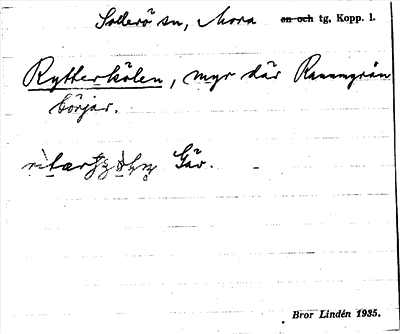 Sollerö sn, Mora en och tg, Kopp. l.
Rytterkölen, myr där Rammgrån
börjar.
Gäv.
Bror Lindén 1935.